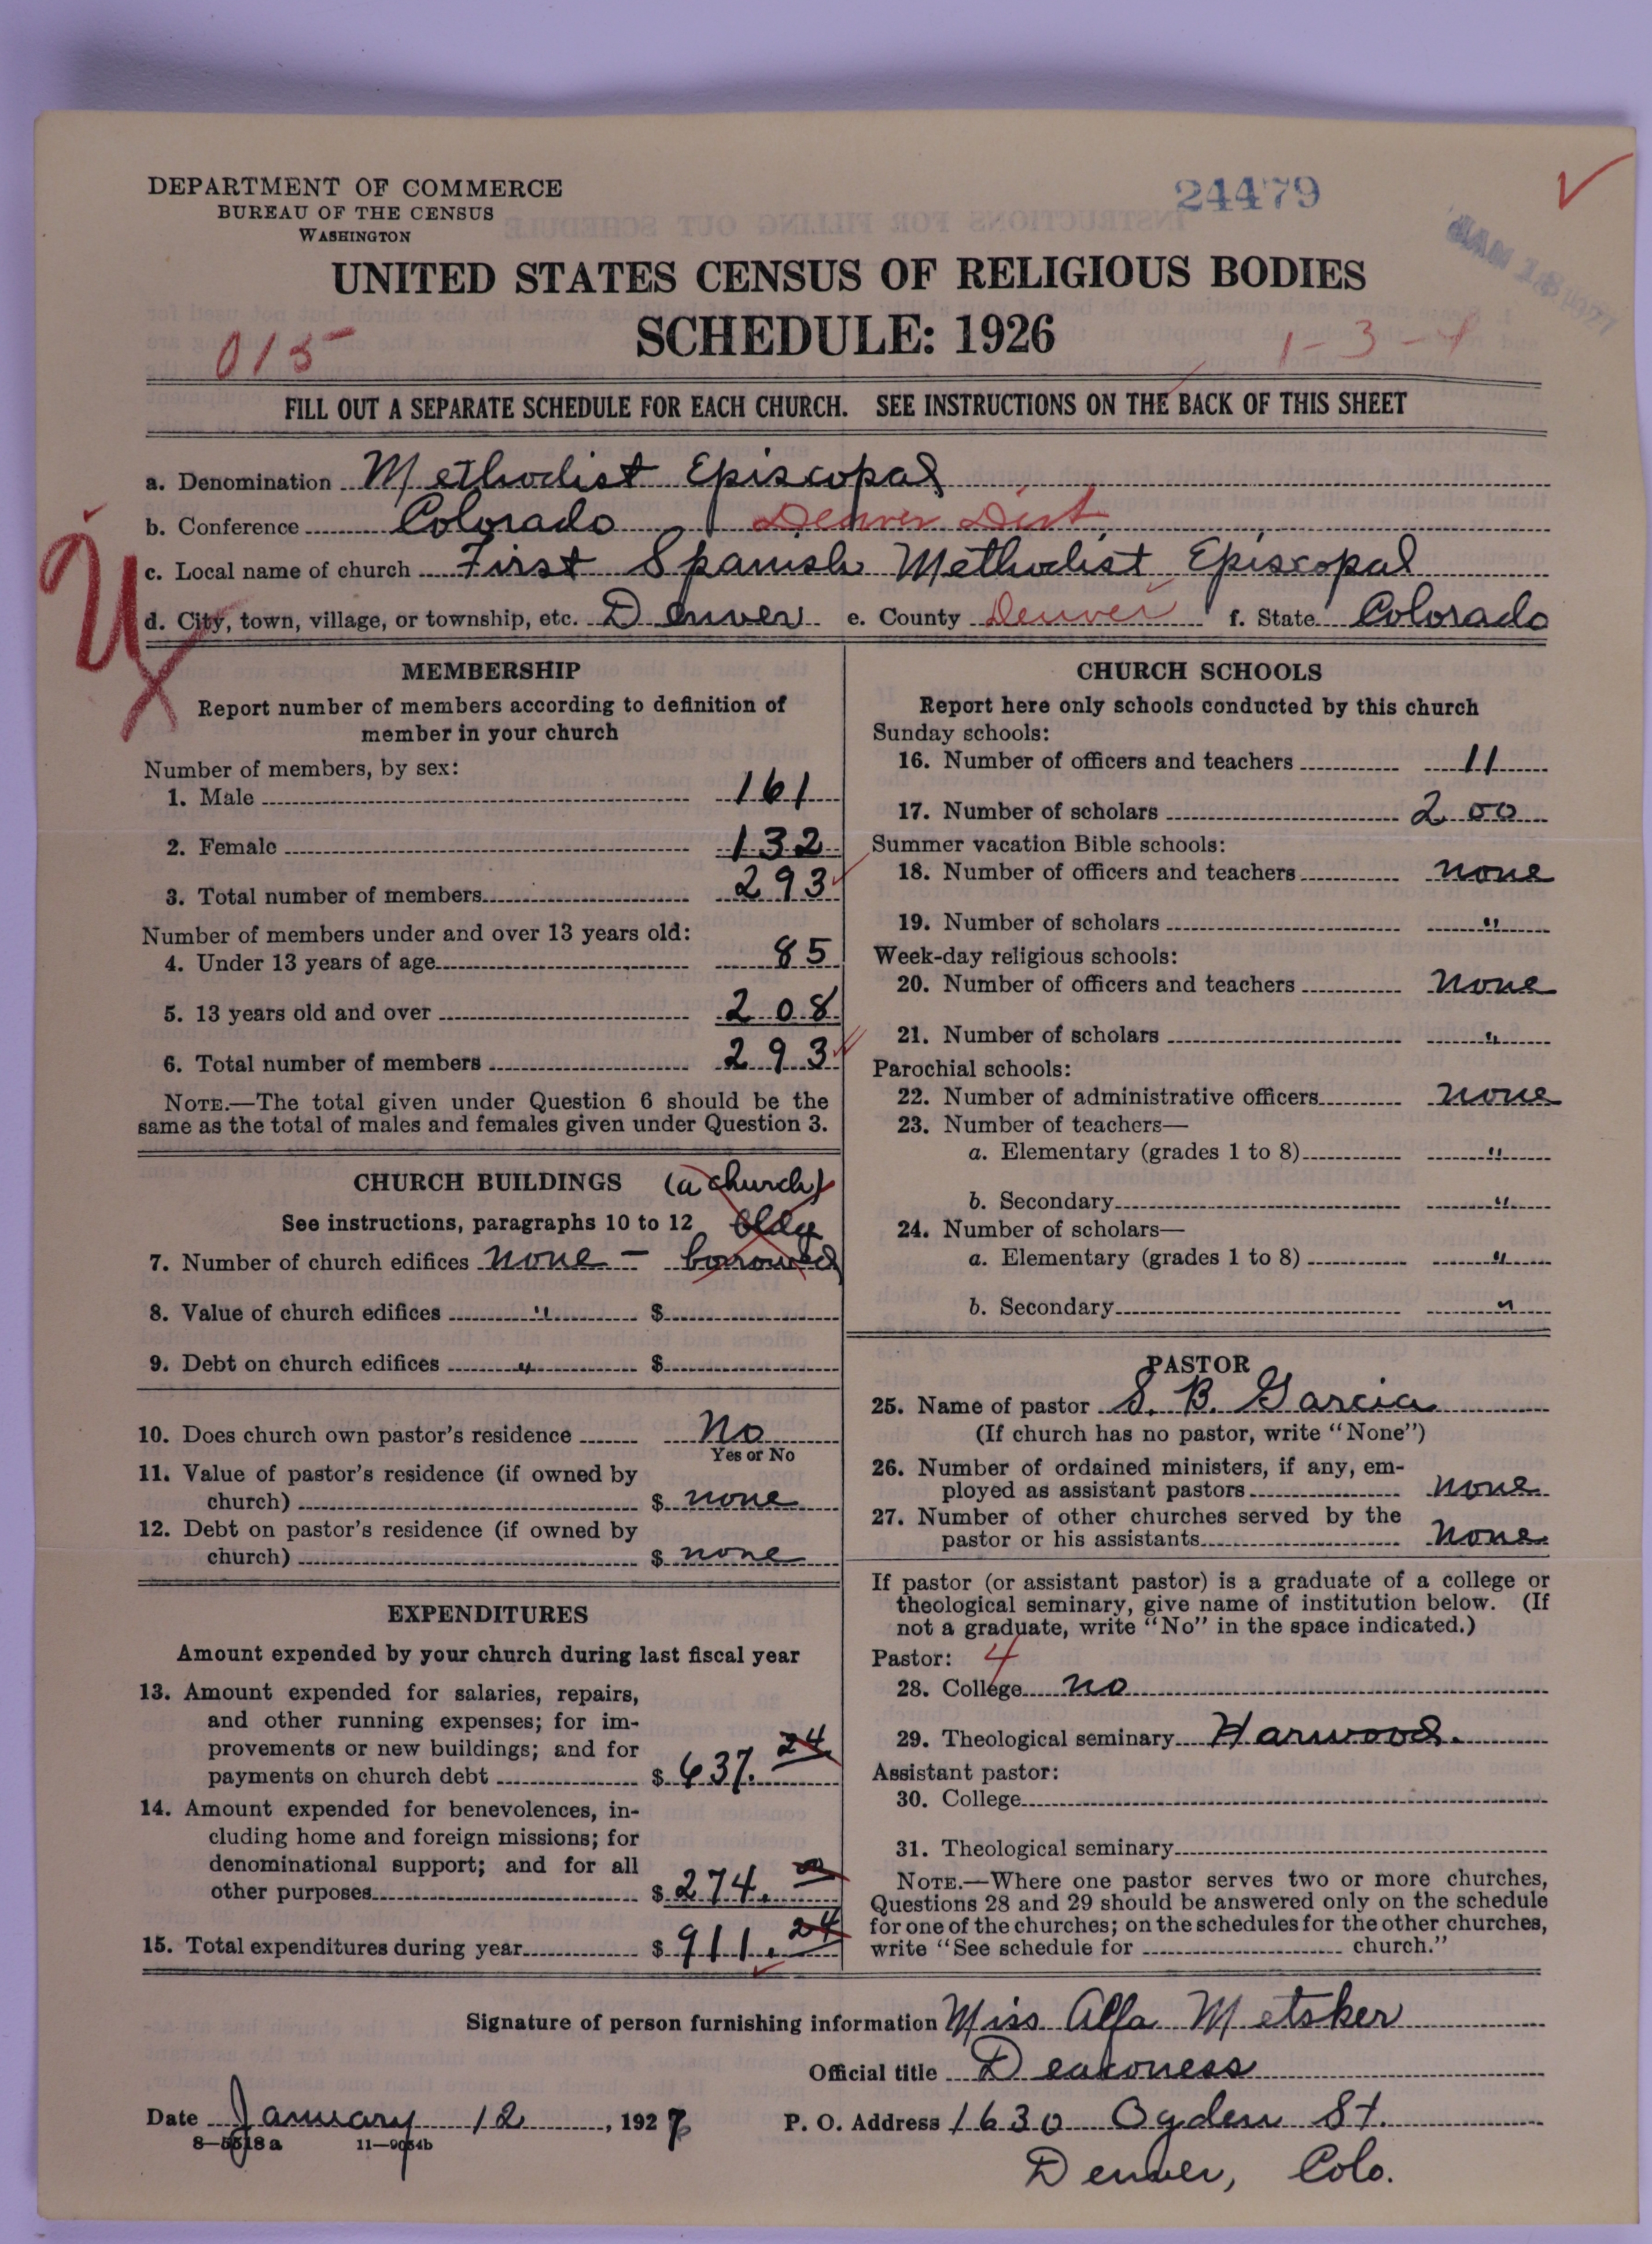 DEPARTMENT OF COMMERCE
BUREAU OF THE CENSUS
WASHINGTON
24479
JAN 18 1927
UNITED STATES CENSUS OF RELIGIOUS BODIES
SCHEDULE: 1926
015
1-3-
FILL OUT A SEPARATE SCHEDULE FOR EACH CHURCH. SEE INSTRUCTIONS ON THE BACK OF THIS SHEET
a. Denomination Methodist Episcopal
b. Conference Colorado Denver Dist
c. Local name of church First Spanish Methodist Episcopal
d. City, town, village, or township, etc. Denver e. County Denver f. State Colorado
U
MEMBERSHIP
Report number of members according to definition of
member in your church
Number of members, by sex:
1. Male 161
2. Female 132
3. Total number of members 293
Number of members under and over 13 years old:
4. Under 13 years of age 85
5. 13 years old and over 208
6. Total number of members 293
NOTE.—The total given under Question 6 should be the
same as the total of males and females given under Question 3.
CHURCH BUILDINGS (a church)
See instructions, paragraphs 10 to 12 bldg
7. Number of church edifices none - borrowed
8. Value of church edifices " $
9. Debt on church edifices " $
10. Does church own pastor's residence No
Yes or No
11. Value of pastor's residence (if owned by
church) $ none
12. Debt on pastor's residence (if owned by
church) $ none
EXPENDITURES
Amount expended by your church during last fiscal year
13. Amount expended for salaries, repairs,
and other running expenses; for im-
provements or new buildings; and for
payments on church debt $ 637. 24
14. Amount expended for benevolences, in-
cluding home and foreign missions; for
denominational support; and for all
other purposes $ 274. 00
15. Total expenditures during year $ 911. 24
CHURCH SCHOOLS
Report here only schools conducted by this church
Sunday schools:
16. Number of officers and teachers 11
17. Number of scholars 200
Summer vacation Bible schools:
18. Number of officers and teachers none
19. Number of scholars "
Week-day religious schools:
20. Number of officers and teachers none
21. Number of scholars "
Parochial schools:
22. Number of administrative officers none
23. Number of teachers—
a. Elementary (grades 1 to 8) "
b. Secondary "
24. Number of scholars—
a. Elementary (grades 1 to 8) "
b. Secondary "
PASTOR
25. Name of pastor S. B. Garcia
(If church has no pastor, write "None")
26. Number of ordained ministers, if any, em-
ployed as assistant pastors none
27. Number of other churches served by the
pastor or his assistants none
If pastor (or assistant pastor) is a graduate of a college or
theological seminary, give name of institution below. (If
not a graduate, write "No" in the space indicated.)
Pastor: 4
28. College no
29. Theological seminary Harwood.
Assistant pastor:
30. College
31. Theological seminary
NOTE.—Where one pastor serves two or more churches,
Questions 28 and 29 should be answered only on the schedule
for one of the churches; on the schedules for the other churches,
write "See schedule for church."
Signature of person furnishing information Miss Alfa Metsker
Official title Deaconess
Date January 12, 1927 P. O. Address 1630 Ogden St.
8—5518 a 11—9054b
Denver, Colo.